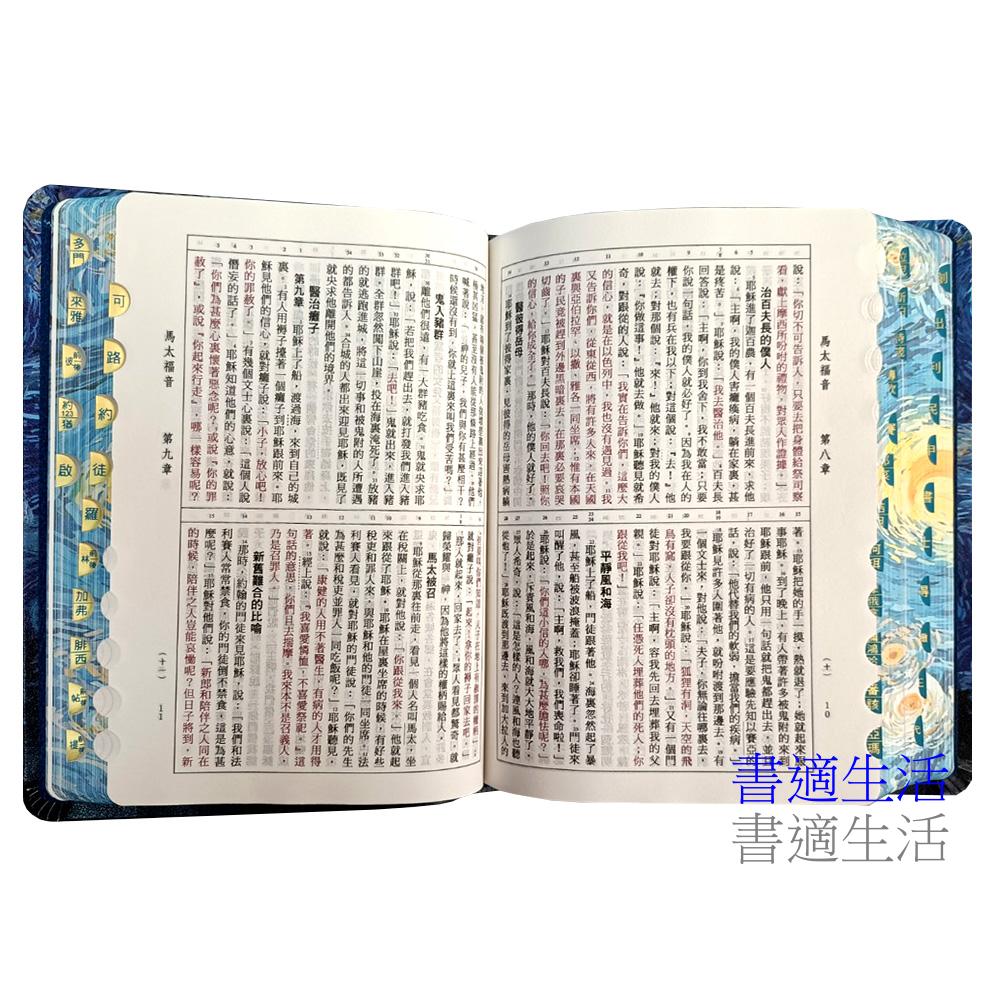 馬太福音 第八章
說：「你切不可告訴人，只要去把身體給祭司察
看，獻上摩西所吩咐的禮物，對眾人作證據。」
治百夫長的僕人
耶穌進了迦百農，有一個百夫長進前來，求他
說：「主啊，我的僕人害癱瘓病，躺在家裏，甚
是疼苦。」耶穌說：「我去醫治他。」百夫長
回答說：「主啊，你到我舍下，我不敢當；只要
你說一句話，我的僕人就必好了。因為我在人的
權下，也有兵在我以下；對這個說：『去！』他
就去；對那個說：『來！』他就來；對我的僕人
說：『你做這事！』他就去做。」耶穌聽見就希
奇，對跟從的人說：「我實在告訴你們，這麼大
的信心，就是在以色列中，我也沒有遇見過。我
又告訴你們，從東從西，將有許多人來，在天國
裏與亞伯拉罕、以撒、雅各一同坐席；惟有本國
的子民竟被趕到外邊黑暗裏去，在那裏必要哀哭
切齒了。」耶穌對百夫長說：「你回去吧！照你
的信心，給你成全了。」那時，他的僕人就好了。
醫彼得岳母
耶穌到了彼得家裏，見彼得的岳母害熱病躺
著。耶穌把她的手一摸，熱就退了；她就起來服
事耶穌。到了晚上，有人帶著許多被鬼附的來到
耶穌跟前，他只用一句話就把鬼都趕出去，並且
治好了一切有病的人。這是要應驗先知以賽亞的
話，說：「他代替我們的軟弱，擔當我們的疾病。」
耶穌見許多人圍著他，就吩咐渡到那邊去。有
一個文士來，對他說：「夫子，你無論往哪裏去，
我要跟從你。」耶穌說：「狐狸有洞，天空的飛
鳥有窩，人子卻沒有枕頭的地方。」又有一個門
徒對耶穌說：「主啊，容我先回去埋葬我的父
親。」耶穌說：「任憑死人埋葬他們的死人；你
跟從我吧！」
平靜風和海
耶穌上了船，門徒跟著他。海裏忽然起了暴
風，甚至船被波浪掩蓋；耶穌卻睡著了。門徒來
叫醒了他，說：「主啊，救我們，我們喪命啦！」
耶穌說：「你們這小信的人哪，為甚麼膽怯呢？」
於是起來，斥責風和海，風和海就大大地平靜了。
眾人希奇，說：「這是怎樣的人？連風和海也聽
從他了！」耶穌既渡到那邊去，來到加大拉人的
(十)
10
馬太福音 第九章
喊著說：「神的兒子，我們與你有甚麼相干？
時候還沒有到，你就上這裏來叫我們受苦嗎？」
鬼入豬群
離他們很遠，有一大群豬吃食。鬼就央求耶
穌，說：「若把我們趕出去，就打發我們進入豬
群吧！」耶穌說：「去吧！」鬼就出來，進入豬
群。全群忽然闖下山崖，投在海裏淹死了。放豬
的就逃跑進城，將這一切事和被鬼附的人所遭遇
的都告訴人。合城的人都出來迎見耶穌，既見了
就央求他離開他們的境界。
醫治癱子
第九章 耶穌上了船，渡過海，來到自己的城
裏。有人用褥子擡著一個癱子到耶穌跟前來。耶
穌見他們的信心，就對癱子說：「小子，放心吧！
你的罪赦了。」有幾個文士心裏說：「這個人說
僭妄的話了。」耶穌知道他們的心意，就說：
「你們為甚麼心裏懷著惡念呢？或說『你的罪
赦了』，或說『你起來行走』，哪一樣容易呢？
就對癱子說：「起來！拿你的褥子回家去吧。」
那人就起來，回家去了。眾人看見都驚奇，就
歸榮耀與 神，因為他將這樣的權柄賜給人。
馬太被召
耶穌從那裏往前走，看見一個人名叫馬太，坐
在稅關上，就對他說：「你跟從我來。」他就起
來跟從了耶穌。耶穌在屋裏坐席的時候，有好些
稅吏和罪人來，與耶穌和他的門徒一同坐席。法
利賽人看見，就對耶穌的門徒說：「你們的先生
為甚麼和稅吏並罪人一同吃飯呢？」耶穌聽見，
就說：「康健的人用不著醫生，有病的人才用得
著。經上說：『我喜愛憐恤，不喜愛祭祀。』這
句話的意思，你們且去揣摩。我來本不是召義人，
乃是召罪人。」
新舊難合的比喻
那時，約翰的門徒來見耶穌，說：「我們和法
利賽人常常禁食，你的門徒倒不禁食，這是為甚
麼呢？」耶穌對他們說：「新郎和陪伴之人同在
的時候，陪伴之人豈能哀慟呢？但日子將到，新
(十一)
11
多門
來雅
可
路
約
啟
徒
羅
加弗
腓西
帖
創
出
利
民
申
書
士
何珥
番該
亞瑪
書適生活
書適生活